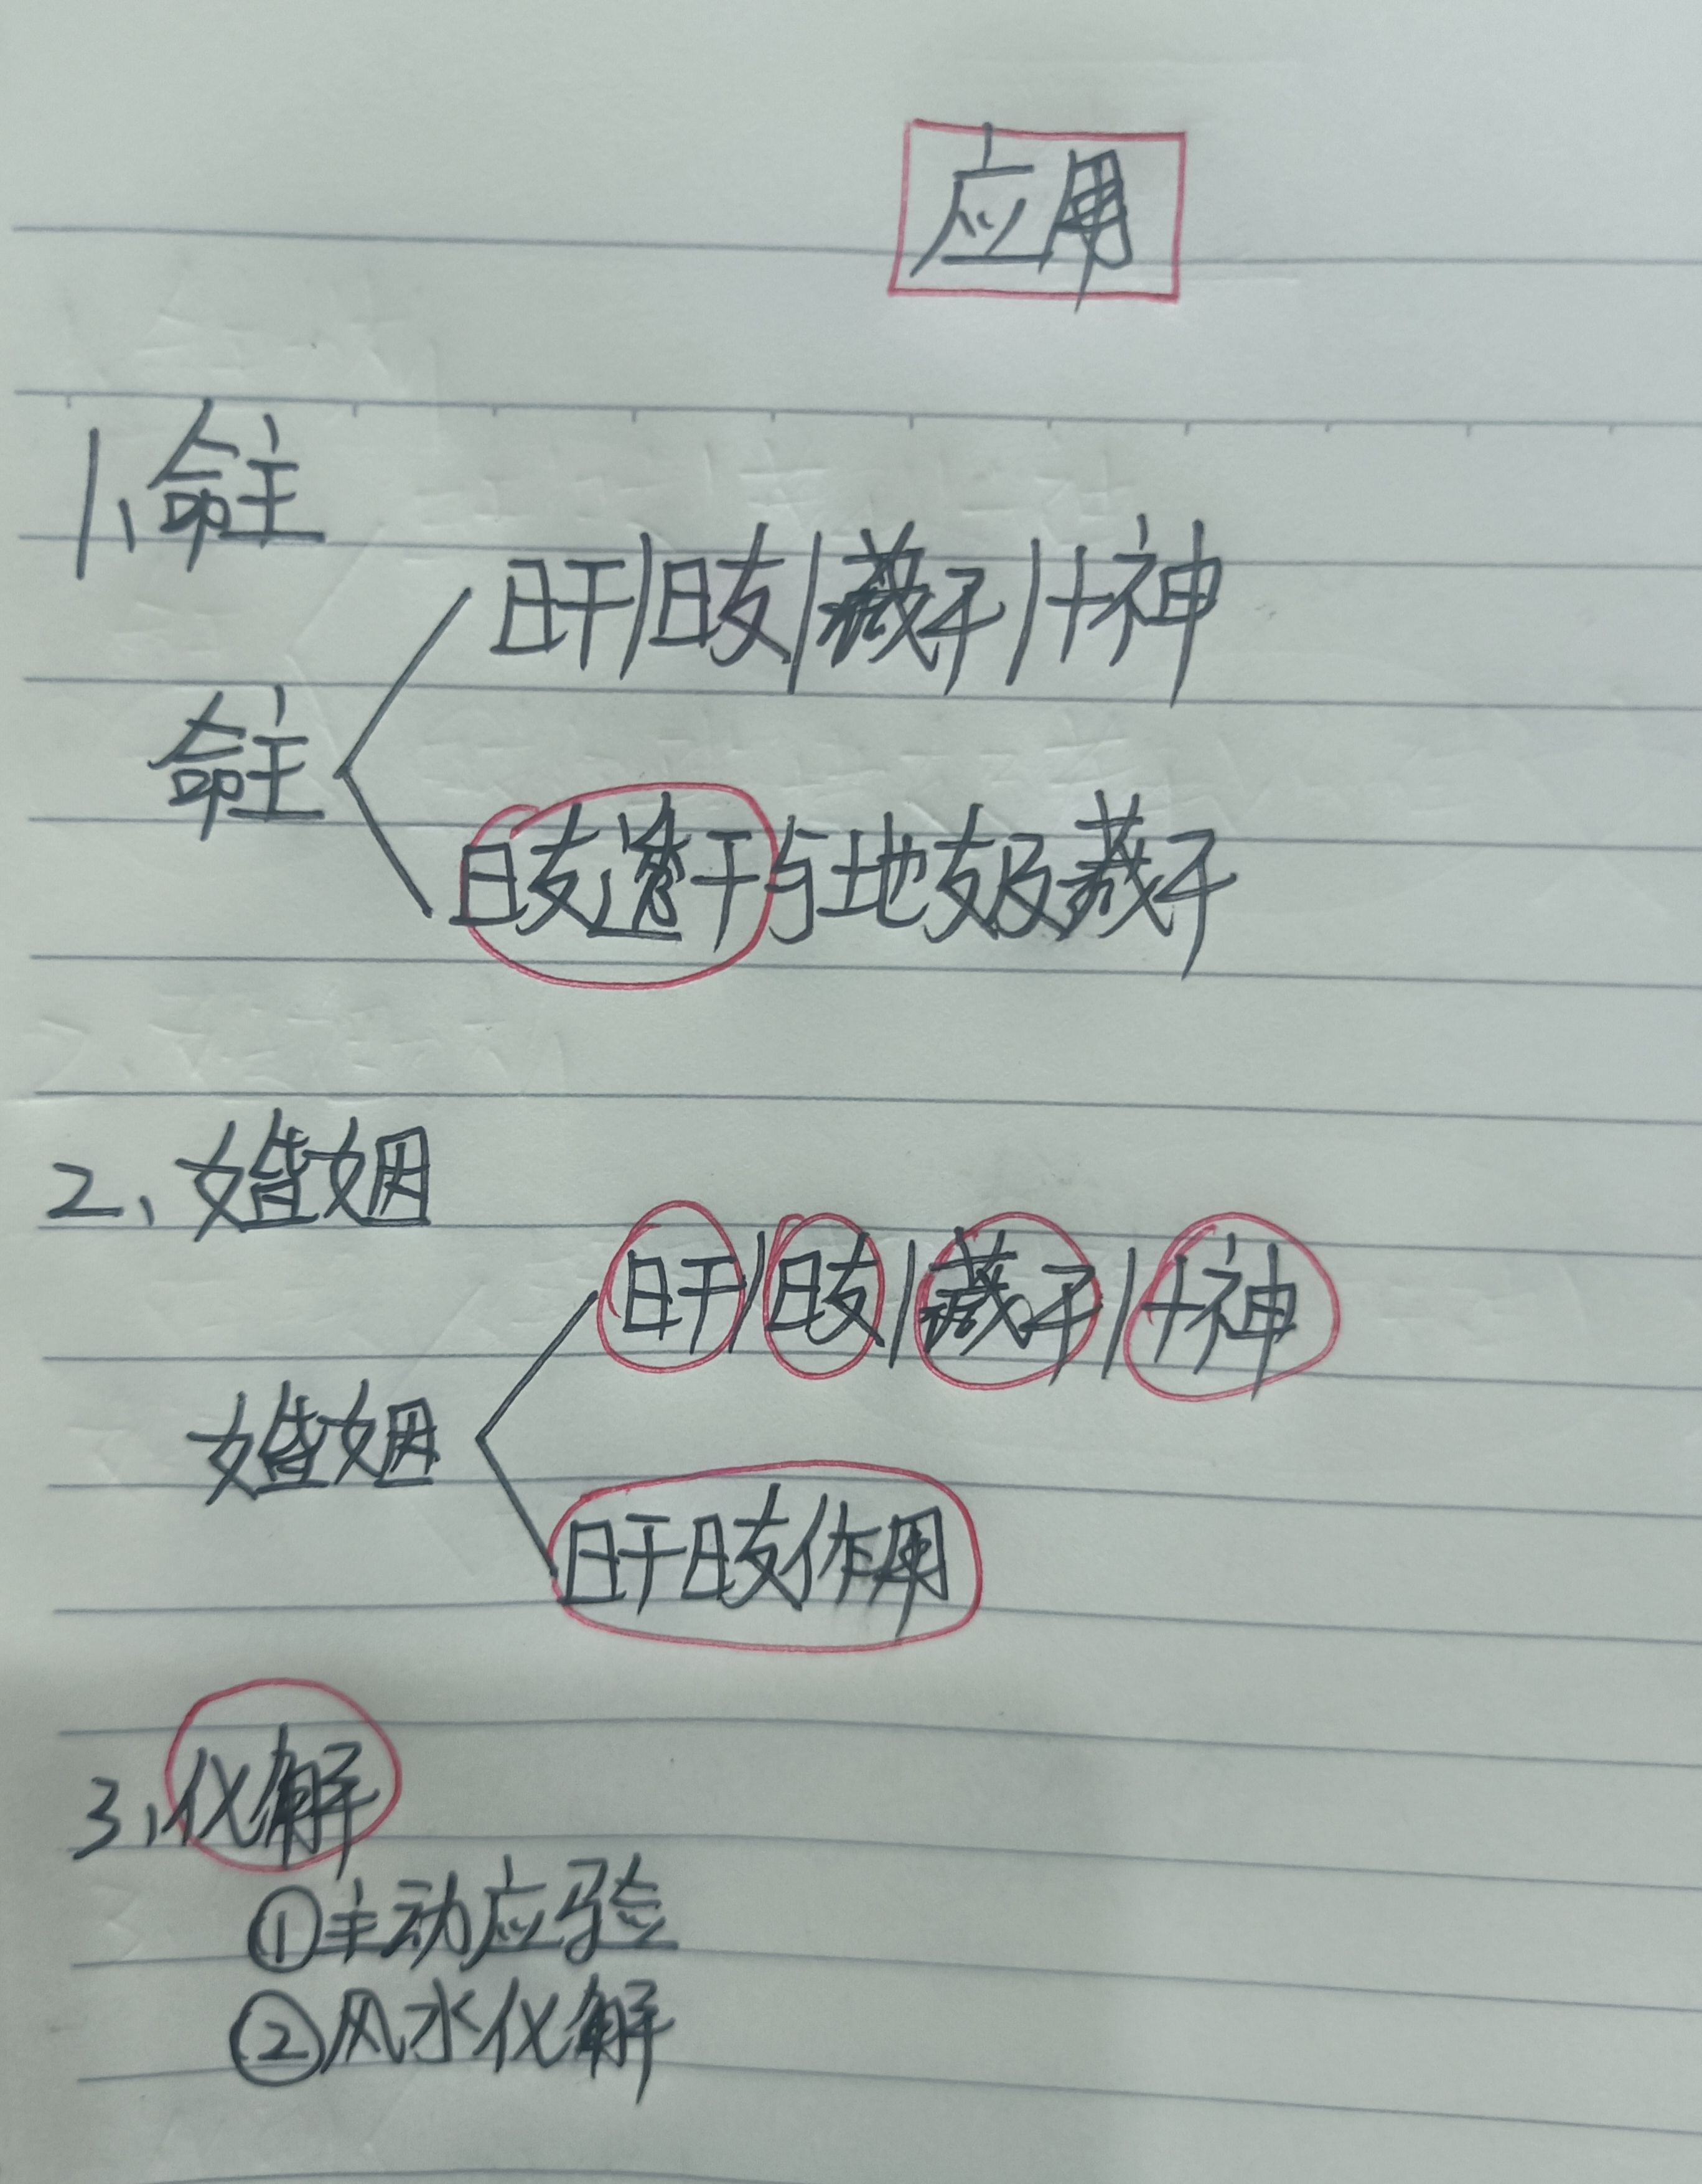 应用
1、命主
日干|日支|藏干|十神
命主
日支遁干与地支及藏干
2、婚姻
日干|日支|藏干|十神
婚姻
日干日支作用
3、化解
①主动应验
②风水化解